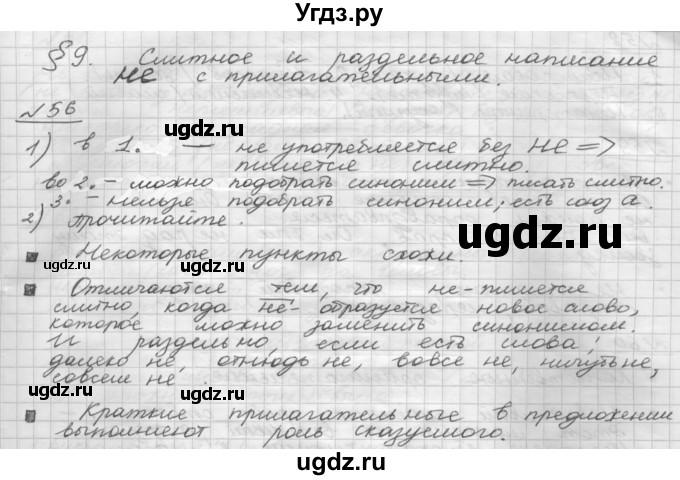 Угдз.ру
§ 9. Слитное и раздельное написание
не с прилагательными.
№ 56
угдз.ru
1) в 1. — не употребляется без НЕ =>
пишется слитно.
во 2. - можно подобрать синоним => писать слитно.
3. - нельзя подобрать синоним; есть союз а.
2) Прочитайте.
угдз.ru
Некоторые пункты схожи.
угдз.ru
Отличаются тем, что не - пишется
слитно, когда не - образуется новое слово,
которое можно заменить синонимом.
И раздельно, если есть слова:
далеко не, отнюдь не, вовсе не, ничуть не,
совсем не.
угдз.ru
угдз.ru
Краткие прилагательные в предложении
выполняют роль сказуемого.
угдз.ru